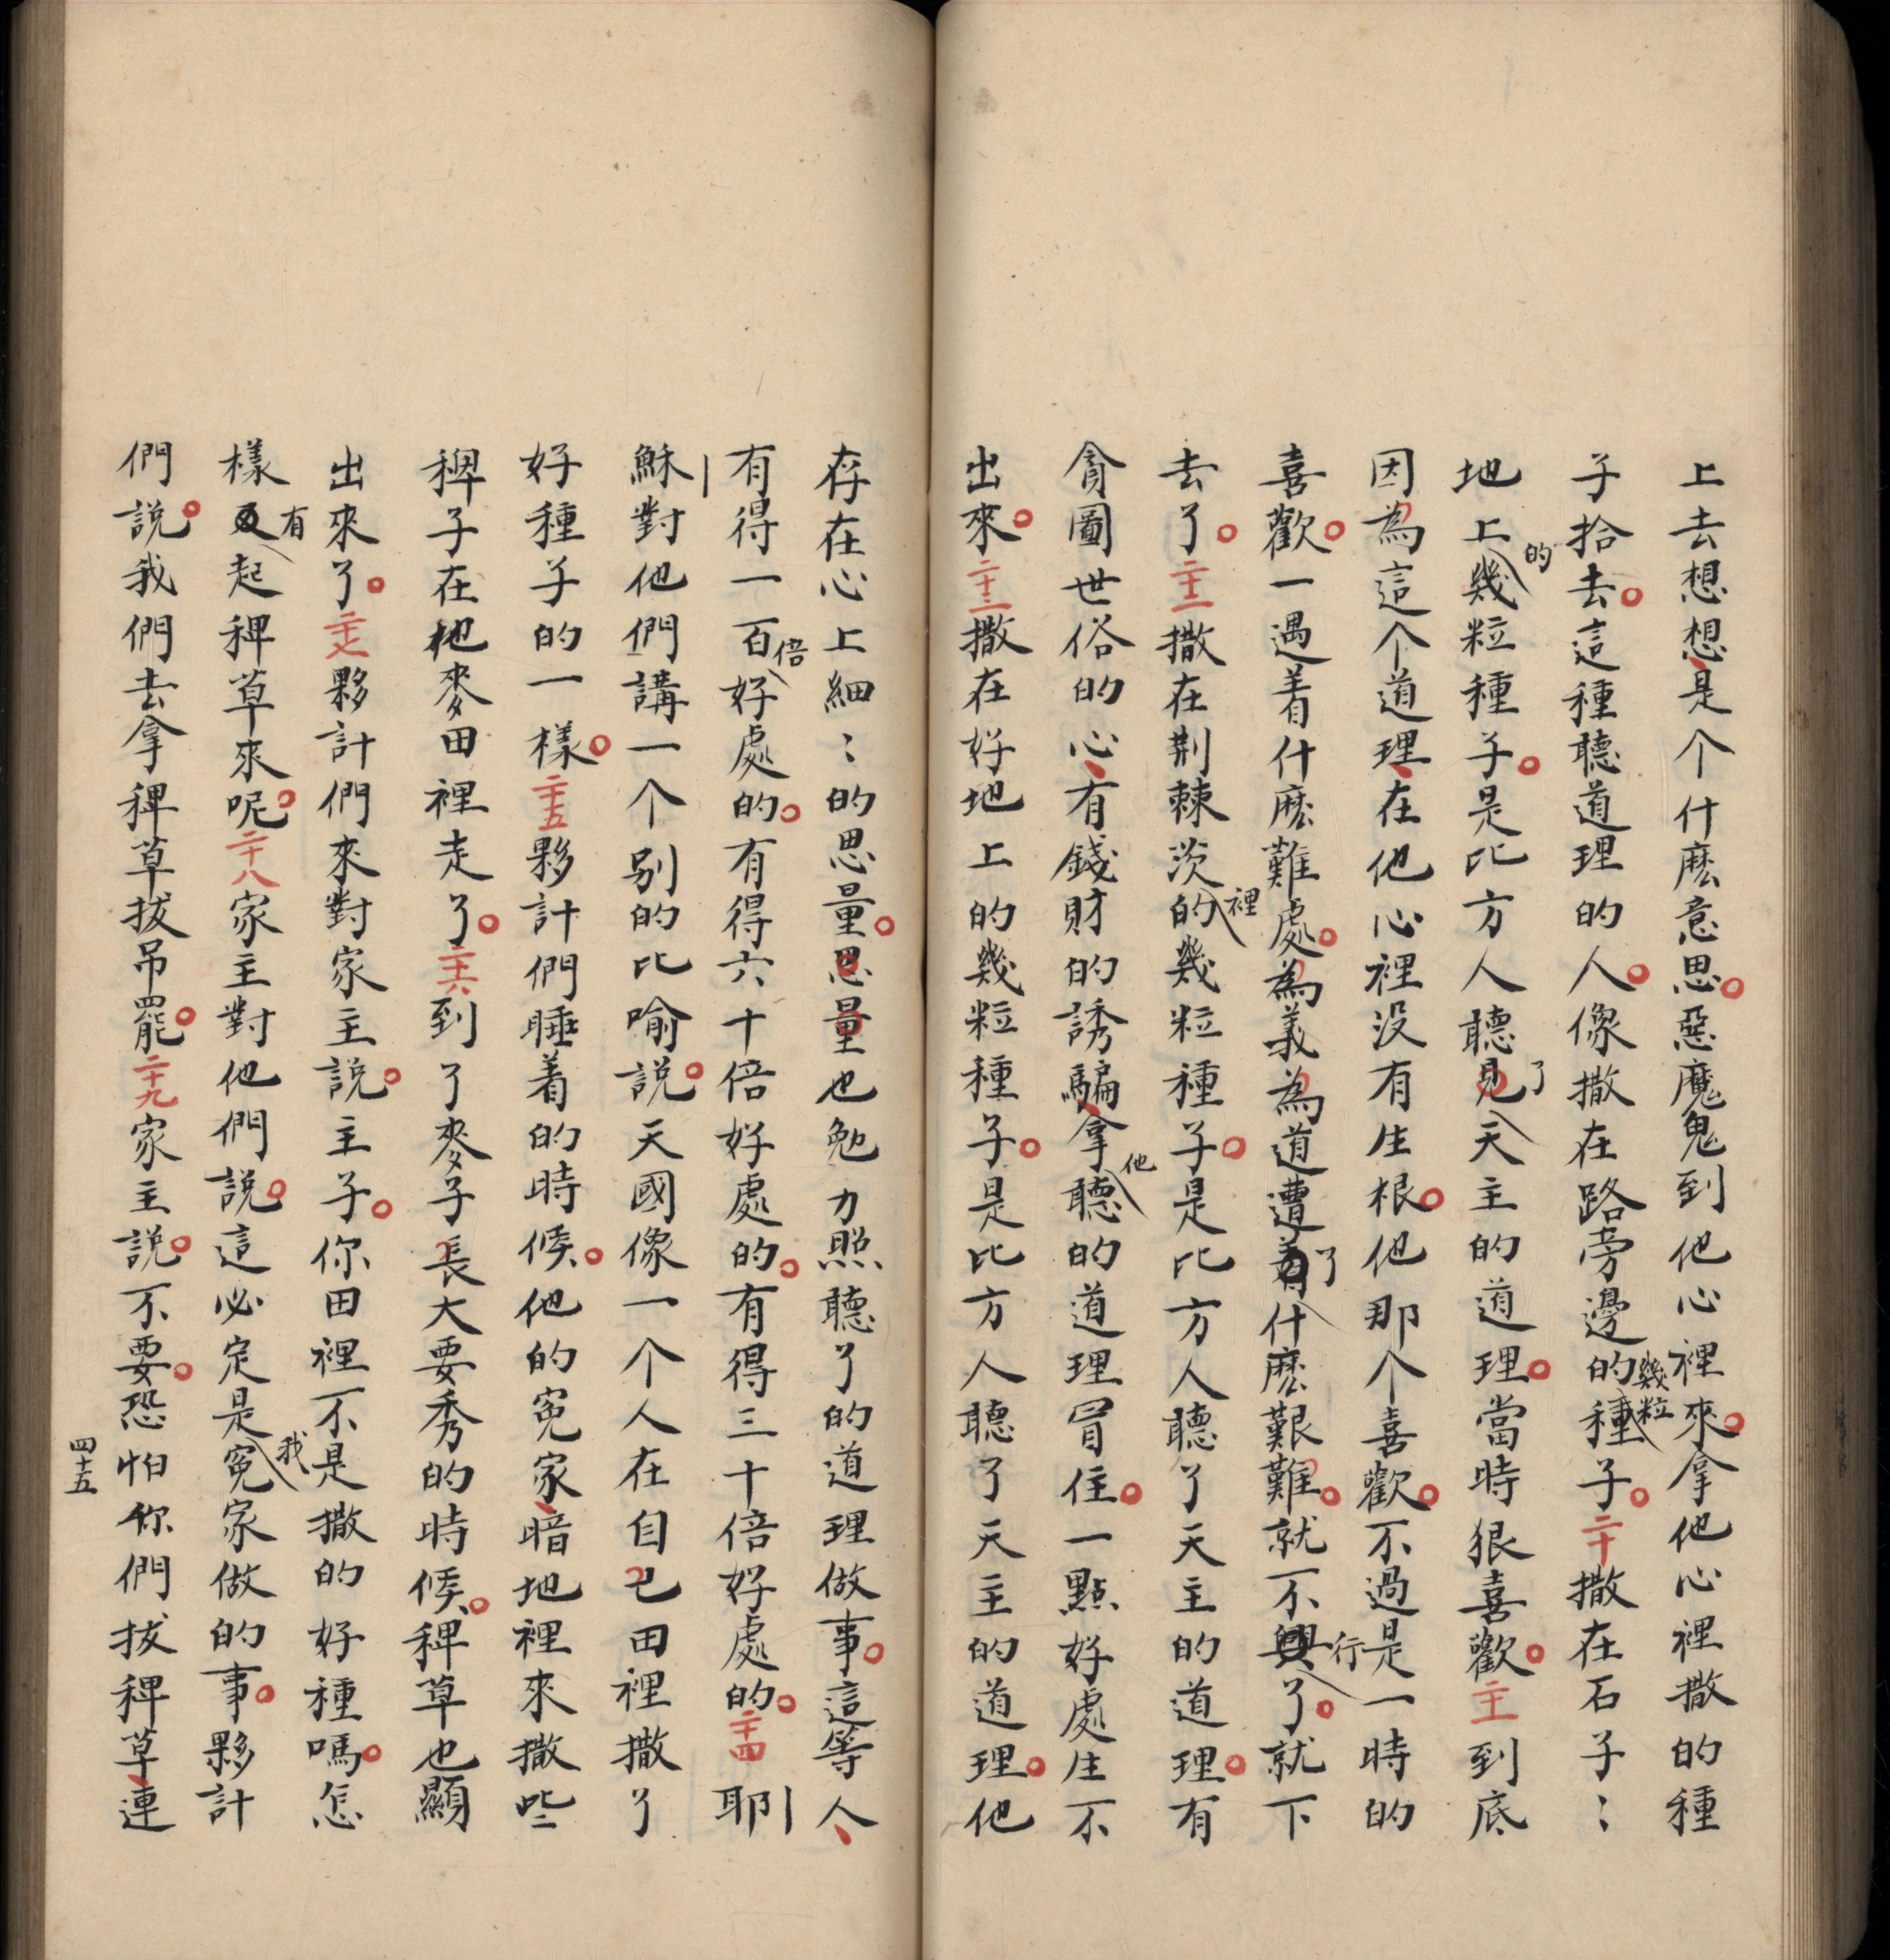 上去想想是个什麽意思惡魔鬼到他心裡來拿他心裡撒的種
子拾去這種聽道理的人像撒在路旁邊的幾粒種子二十撒在石子〻
地上的幾粒種子是比方人聽了天主的道理當時狠喜歡二十一到底
因為這个道理在他心裡没有生根他那个喜歡不過是一時的
喜歡一遇着什麽難處為義為道遭了什麽艱難就不行了就下
去了二十二撒在荆棘茨裡的幾粒種子是比方人聽了天主的道理有
貪圖世俗的心有錢財的誘騙拿他聽的道理罥住一點好處生不
出來二十三撒在好地上的幾粒種子是比方人聽了天主的道理他
存在心上細〻的思量思量也勉力照聽了的道理做事這等人
有得一百倍好處的有得六十倍好處的有得三十倍好處的二十四耶
穌對他們講一个别的比喻説天國像一个人在自己田裡撒了
好種子的一樣二十五夥計們睡着的時候他的寃家暗地裡來撒些
稗子在他麥田裡走了二十六到了麥子長大要秀的時候稗草也顯
出來了二十七夥計們來對家主説主子你田裡不是撒的好種嗎怎
樣有起稗草來呢二十八家主對他們説這必定是我寃家做的事夥計
們説我們去拿稗草拔吊罷二十九家主説不要恐怕你們拔稗草連
四十五